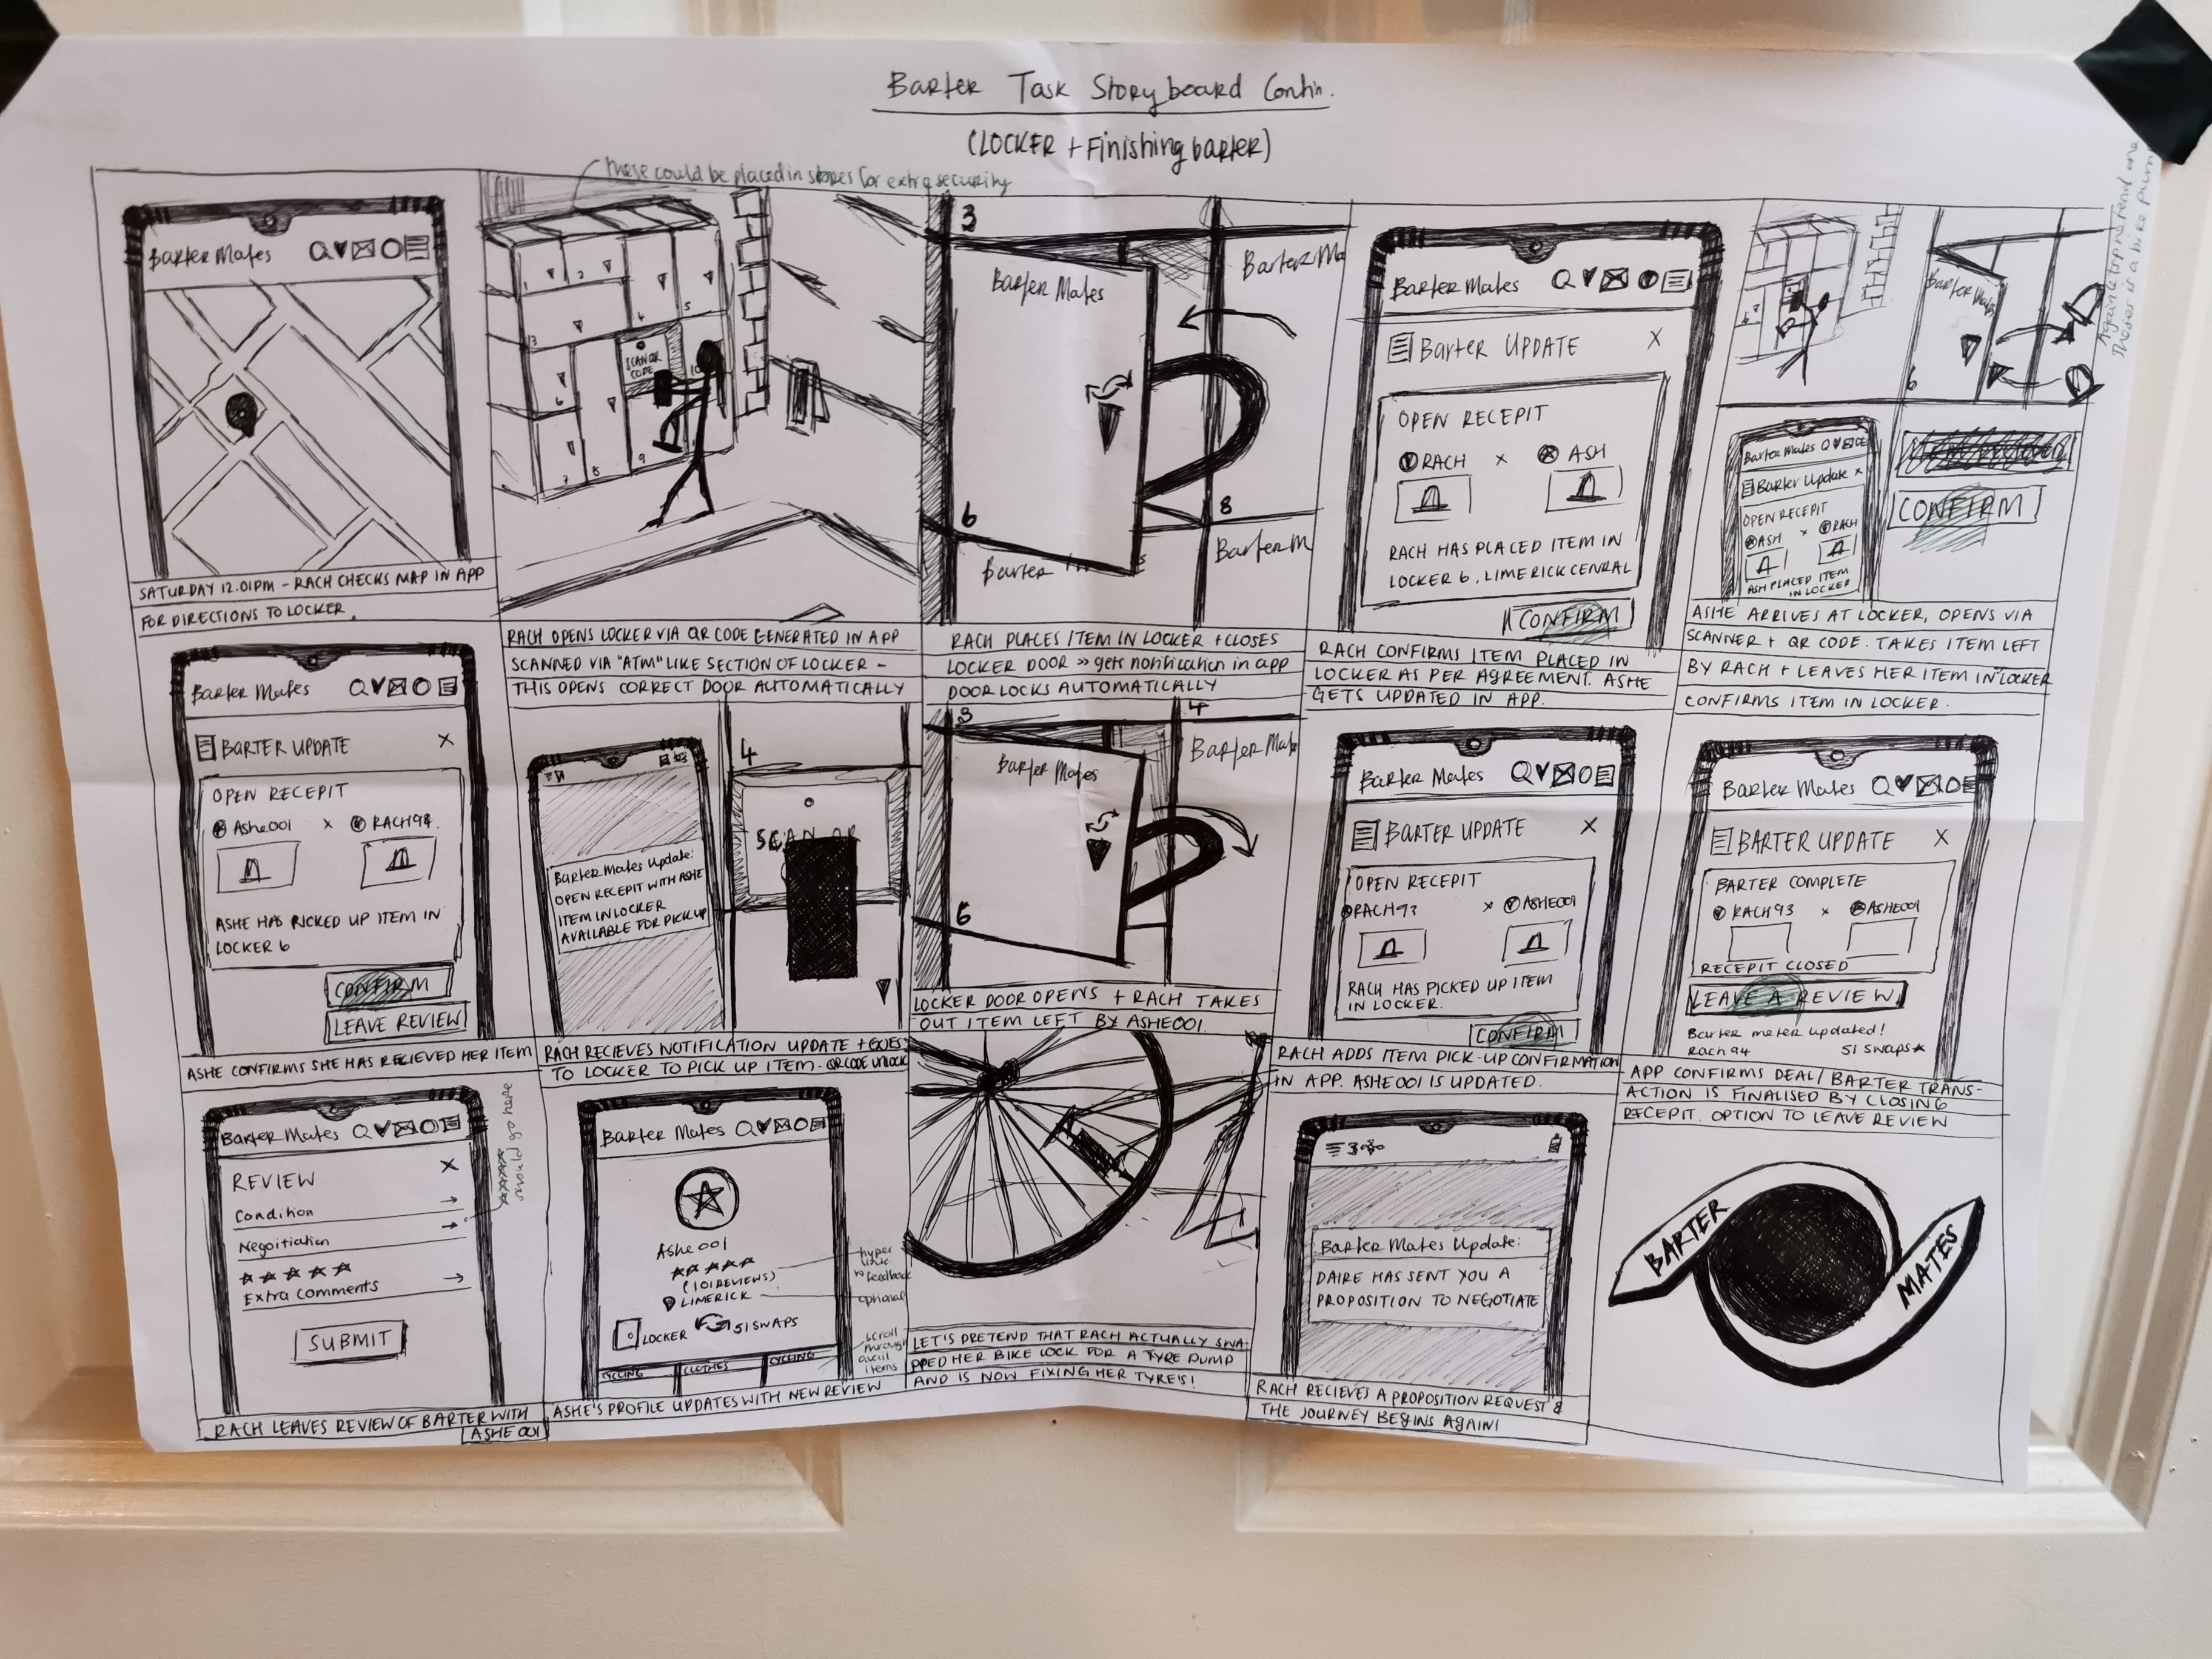 Barter Task Storyboard Contin.
(LOCKER + Finishing barter)
These could be placed in stores for extra security
Barter Mates
SATURDAY 12.01PM - RACH CHECKS MAP IN APP
FOR DIRECTIONS TO LOCKER.
1
2
13
4
5
6
7
8
9
10
SCAN QR
CODE
RACH OPENS LOCKER VIA QR CODE GENERATED IN APP
SCANNED VIA "ATM" LIKE SECTION OF LOCKER -
THIS OPENS CORRECT DOOR AUTOMATICALLY
3
Barter Mates
Barter Ma
6
8
Barter
Barter M
RACH PLACES ITEM IN LOCKER + CLOSES
LOCKER DOOR >> gets notification in app
DOOR LOCKS AUTOMATICALLY
Barter Mates
Barter UPDATE X
OPEN RECEPIT
RACH x ASH
RACH HAS PLACED ITEM IN
LOCKER 6, LIMERICK CENRAL
CONFIRM
RACH CONFIRMS ITEM PLACED IN
LOCKER AS PER AGREEMENT. ASHE
GETS UPDATED IN APP.
Again
there is a bike pump
Barter Mates
6
Barter Mates
Barter Update x
OPEN RECEPIT
ASH x RACH
ASH PLACED ITEM
IN LOCKER
CONFIRM
ASHE ARRIVES AT LOCKER, OPENS VIA
SCANNER + QR CODE. TAKES ITEM LEFT
BY RACH + LEAVES HER ITEM IN LOCKER
CONFIRMS ITEM IN LOCKER.
Barter Mates
BARTER UPDATE X
OPEN RECEPIT
Ashe001 x RACH94.
ASHE HAS PICKED UP ITEM IN
LOCKER 6
CONFIRM
LEAVE REVIEW
ASHE CONFIRMS SHE HAS RECIEVED HER ITEM
Barter Mates Update:
OPEN RECEPIT WITH ASHE
ITEM IN LOCKER
AVAILABLE FOR PICK UP
4
SCAN QR
RACH RECIEVES NOTIFICATION UPDATE + GOES
TO LOCKER TO PICK UP ITEM. QR CODE UNLOCK
3
4
Barter Mates
Barter Mate
6
LOCKER DOOR OPENS + RACH TAKES
OUT ITEM LEFT BY ASHE001.
Barter Mates
BARTER UPDATE X
OPEN RECEPIT
RACH93 x ASHE001
RACH HAS PICKED UP ITEM
IN LOCKER.
CONFIRM
RACH ADDS ITEM PICK-UP CONFIRMATION
IN APP. ASHE001 IS UPDATED.
Barter Mates
BARTER UPDATE X
BARTER COMPLETE
RACH93 x ASHE001
RECEPIT CLOSED
LEAVE A REVIEW
Barter meter updated!
Rach94 51 SWAPS
APP CONFIRMS DEAL/BARTER TRANS-
ACTION IS FINALISED BY CLOSING
RECEPIT. OPTION TO LEAVE REVIEW
Barter Mates
REVIEW X
Condition
Negoitiation
Extra comments
SUBMIT
should go here
RACH LEAVES REVIEW OF BARTER WITH
ASHE 001
Barter Mates
Ashe001
(101 REVIEWS)
LIMERICK
LOCKER 51 SWAPS
CYCLING CLOTHES CYCLING
hyper
link
to feedback
optional
scroll
through
avail
items
ASHE'S PROFILE UPDATES WITH NEW REVIEW
LET'S PRETEND THAT RACH ACTUALLY SWA-
PPED HER BIKE LOCK FOR A TYRE PUMP
AND IS NOW FIXING HER TYRE'S!
Barter Mates Update:
DAIRE HAS SENT YOU A
PROPOSITION TO NEGOTIATE
RACH RECIEVES A PROPOSITION REQUEST &
THE JOURNEY BEGINS AGAIN!
BARTER
MATES